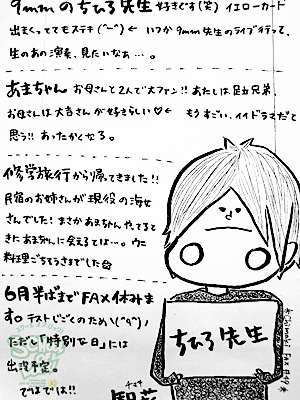 9mmのちひろ先生 好きぐす(笑) イエローカード
出まくっててもステキ(^ー^)← いつか9mm先生のライブ行って、
生のあの演奏、見たいなぁ…。
あまちゃん お母さんと2人で大ファン!! あたしは足立兄弟、
お母さんは大吉さんが好きらしい♡← もうすごい、イイドラマだと
思う!! あったかくなる。
修学旅行から帰ってきました!!
民宿のお姉さんが現役の海女
さんでした! まさかあまちゃんやってると
きにあまちゃんに会えるとは…。ウニ
料理ごちそうさまでした
6月半ばまでFAX休みま
す。テストじごくのため\(^q^)/
ただし「特別な日」には
出没予定。
ではでは!!
ちひろ先生